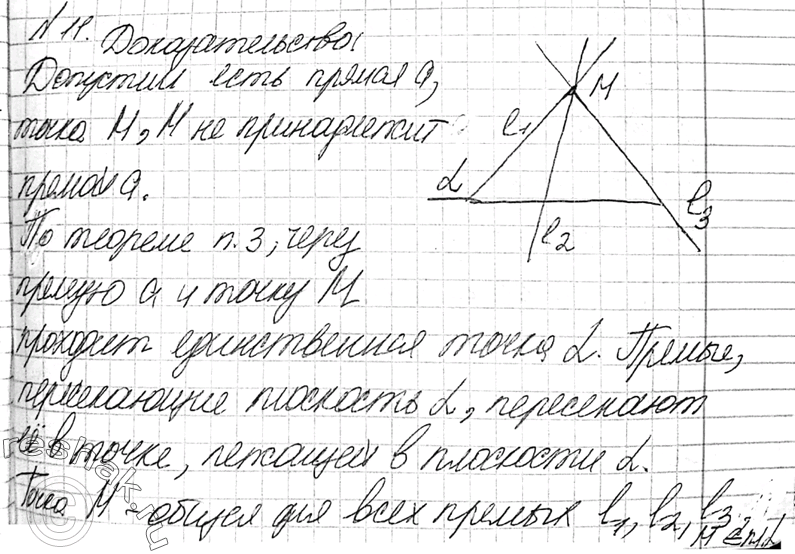 N 11. Доказательство:
Допустим есть прямая a,
точка M, M не принадлежит
прямой a.
По теореме п.3, через
прямую a и точку M
проходит единственная точка α. Прямые,
пересекающие плоскость α, пересекают
её в точке, лежащей в плоскости α.
Точка M - общая для всех прямых l1, l2, l3.
M
l1
α
l2
l3
reshak.ru